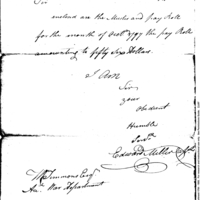 Sir
enclosed are the Muster and pay Roll
for the month of Octr 1797 the pay Roll
amounting to fifty Six Dollars
I am
Sir
your
Obedient
Humble
Servt
Edward Miller Capt
Wm Simmons Esqr
Act War Department